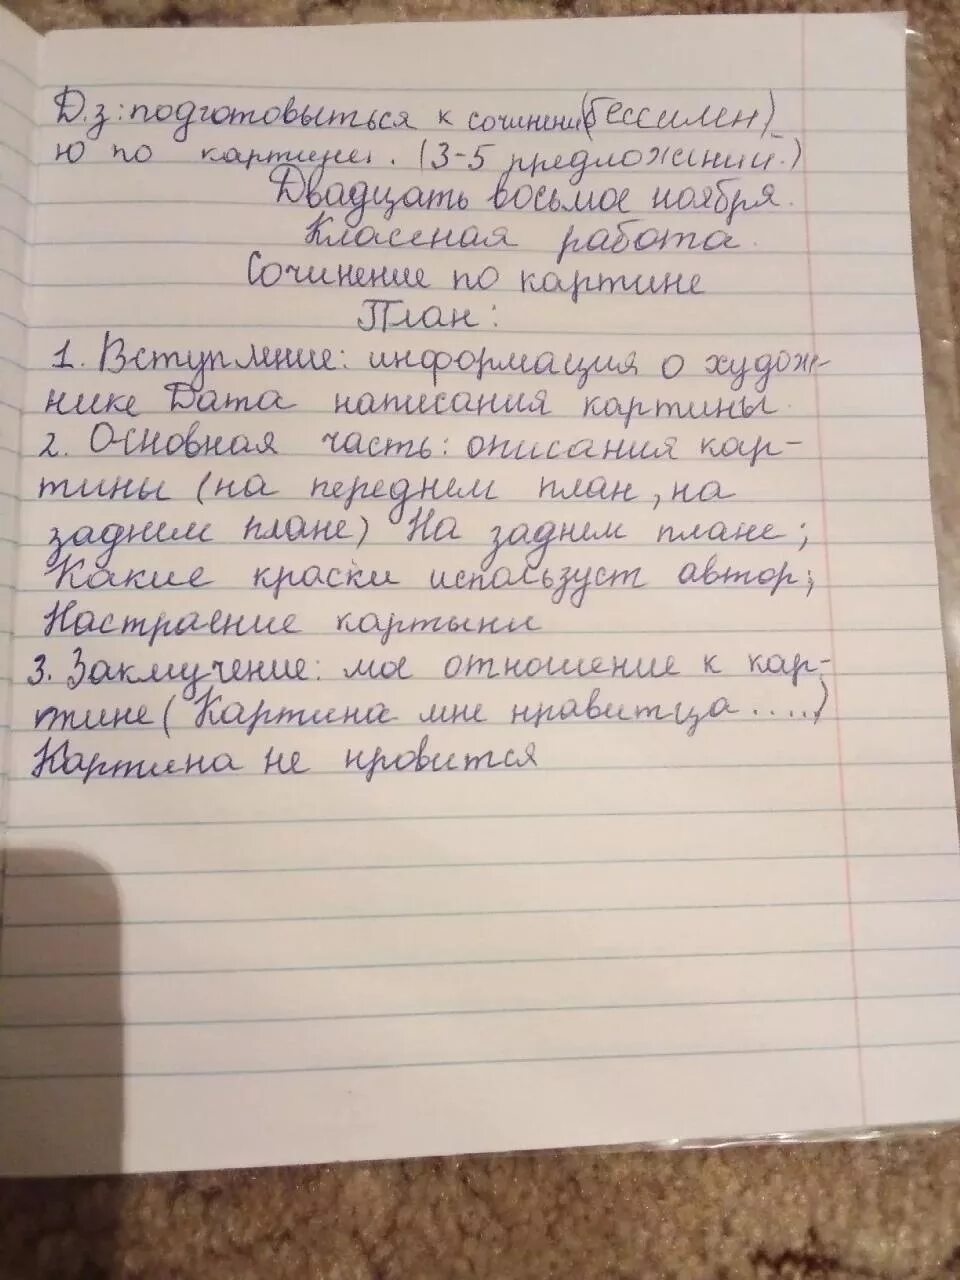 Д.з: подготовыться к сочинени(бессилен)
ю по картине. (3-5 предложений.)
Двадцать восьмое ноября.
Классная работа.
Сочинение по картине
План:
1. Вступление: информация о худож-
нике Дата написания картины.
2. Основная часть: описания кар-
тины (на переднем план, на
заднем плане) На заднем плане;
Какие краски использует автор;
Настраение картыни
3. Заключение: мое отношение к кар-
тине (Картина мне нравитца ....)
Картина не нровится